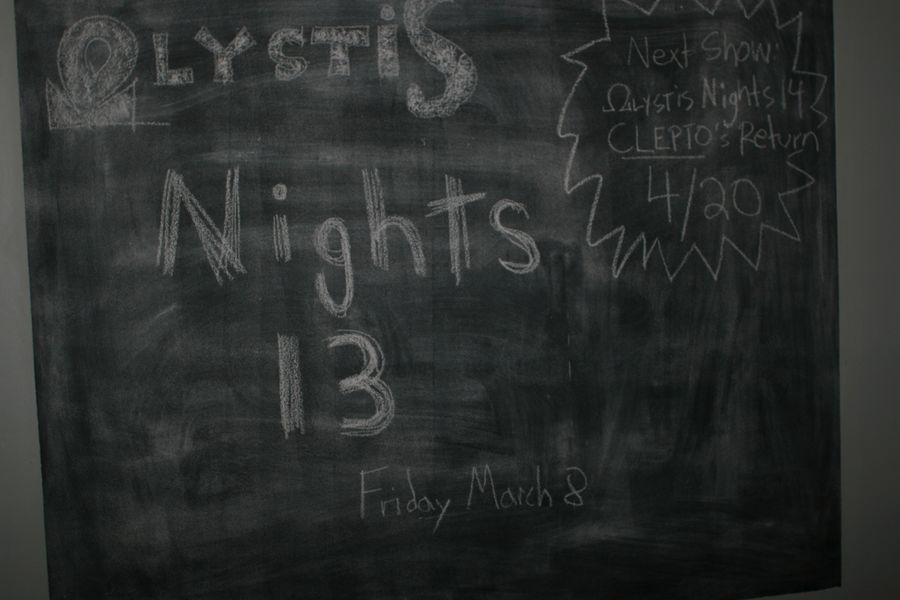 ΩLYSTiS
Nights
13
Friday March 8
Next Show:
Ωlystis Nights 14
CLEPTO's Return
4/20